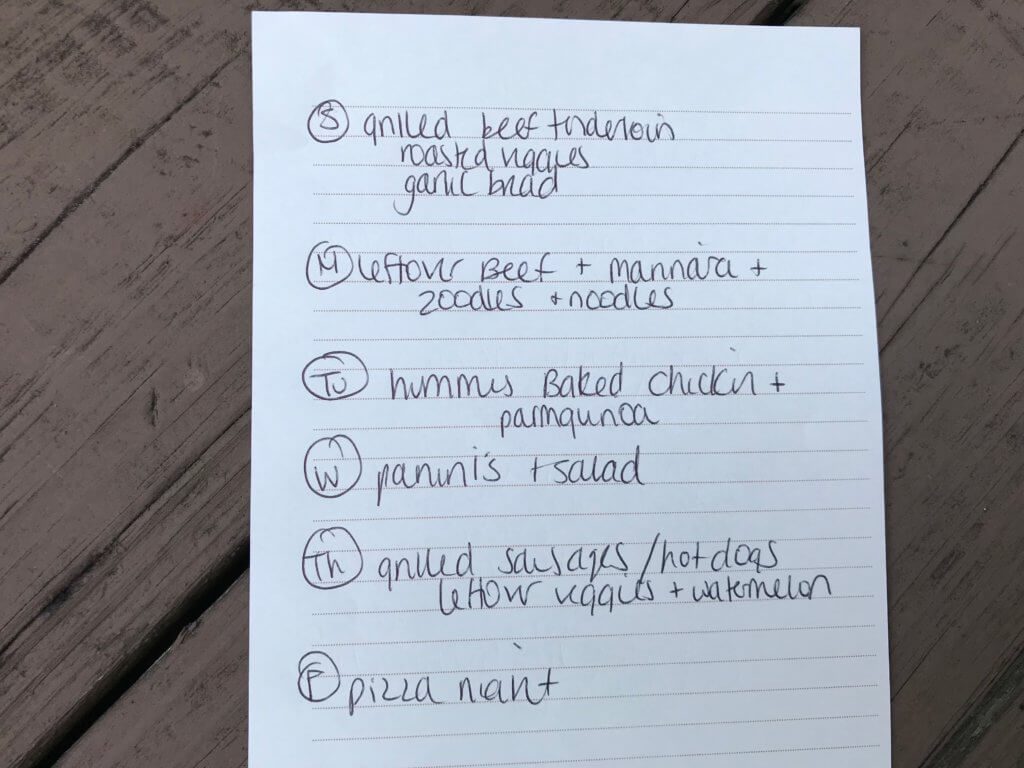 S grilled beef tenderloin
roasted veggies
garlic bread
M leftover Beef + marinara +
zoodles + noodles
Tu hummus Baked chicken +
parm quinoa
W panini's + salad
Th grilled sausages / hot dogs
leftover veggies + watermelon
F pizza night